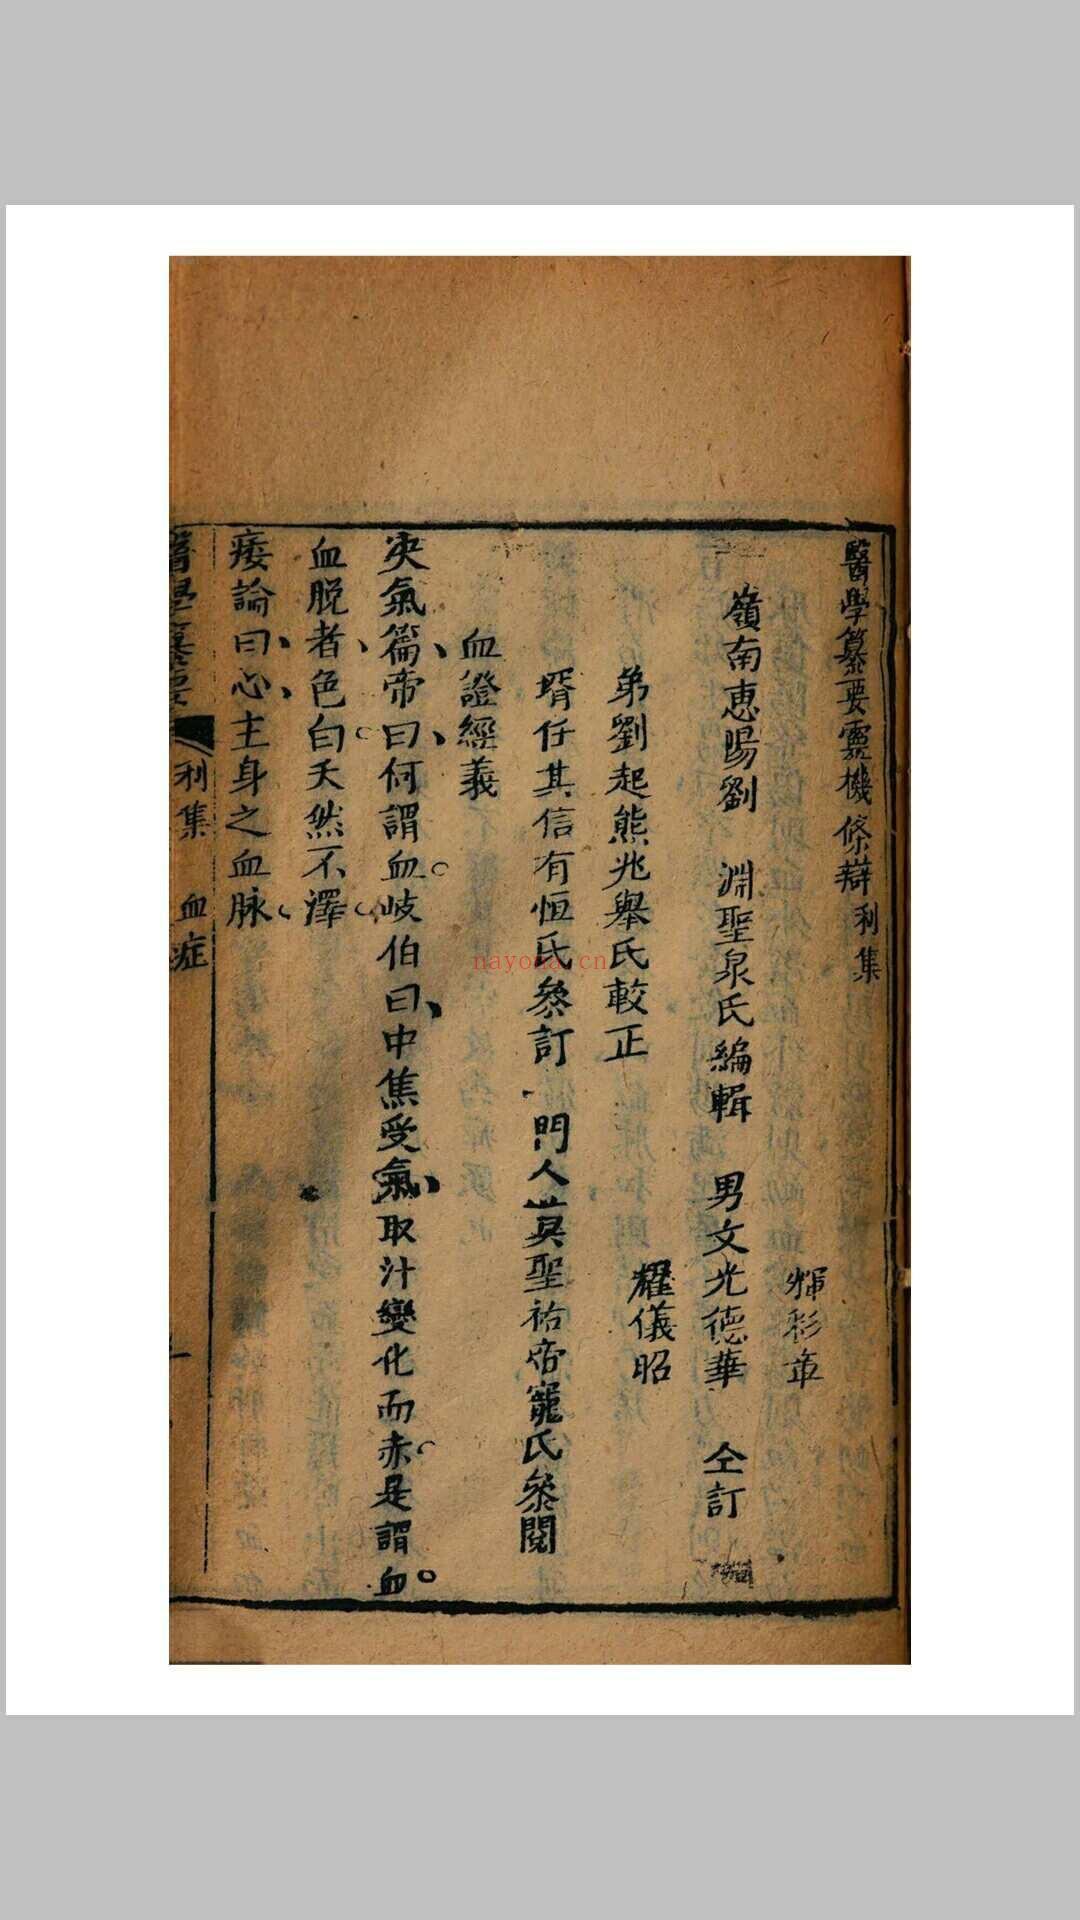 醫學纂要靈機條辯利集
輝彩章
嶺南惠陽劉 淵聖泉氏編輯 男文光德華 仝訂
耀儀昭
弟劉起熊兆舉氏較正
壻任其信有恒氏叅訂 門人 聖祐帝寵氏叅閱
血證經義
決氣篇帝曰何謂血岐伯曰中焦受氣取汁變化而赤是謂血
血脱者色白夭然不澤
痿論曰心主身之血脉
醫學纂要 利集 血症
nayona.cn